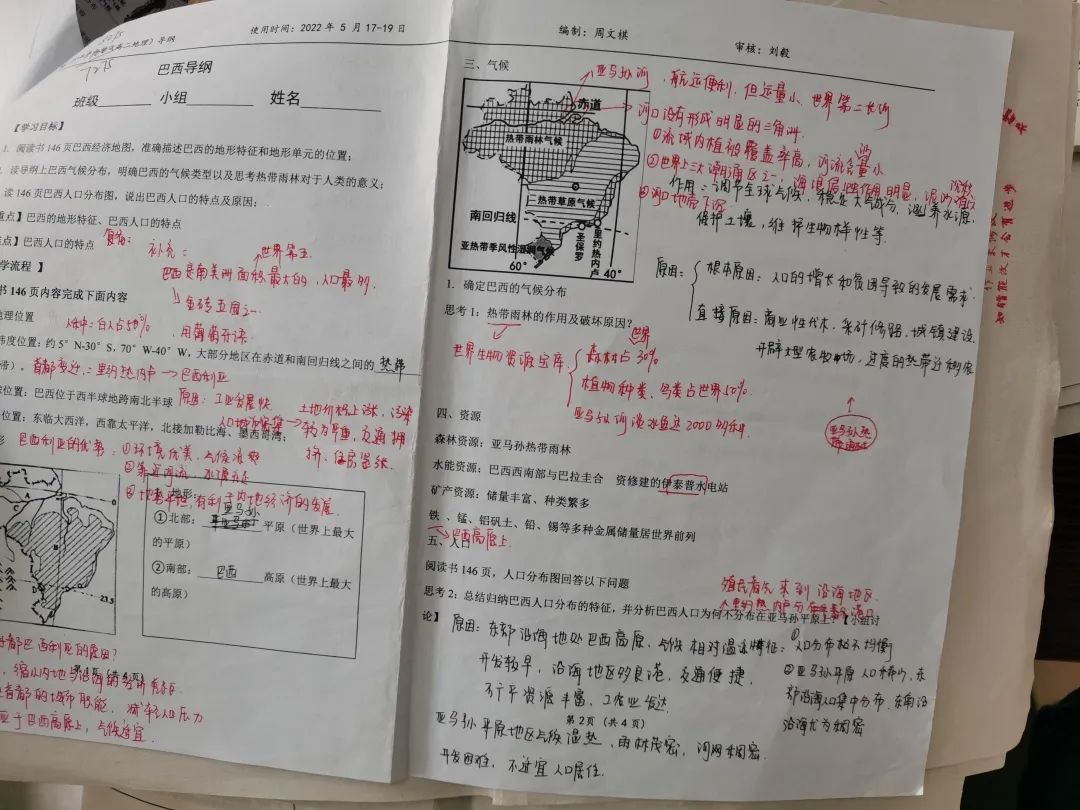 使用时间：2022 年 5 月 17-19 日
编制：周文棋
审核：刘毅
高二地理）导纲
巴西导纲
班级 小组 姓名
【学习目标】
1. 阅读书 146 页巴西经济地图，准确描述巴西的地形特征和地形单元的位置；
读导纲上巴西气候分布，明确巴西的气候类型以及思考热带雨林对于人类的意义；
读 146 页巴西人口分布图，说出巴西人口的特点及原因；
重点】巴西的地形特征、巴西人口的特点
点】巴西人口的特点
补充：
世界第五
学流程 】
巴西是南美洲面积最大的，人口最多
书 146 页内容完成下面内容
金砖五国之一
地理位置
人种：白人占50%
用葡萄牙语
纬度位置：约 5° N-30° S，70° W-40° W，大部分地区在赤道和南回归线之间的 热带
带）。
首都变迁：里约热内卢→巴西利亚
位置：巴西位于西半球地跨南北半球
原因：工业发展快
土地价格上涨，污染
较为严重，交通拥
挤，住房紧张
位置：东临大西洋，西靠太平洋，北接加勒比海、墨西哥湾；
巴西利亚的优势：①环境优美，气候凉爽
②靠近河流，水源充足
③地势平坦，有利于内地经济的发展
地形：
①北部： 亚马孙 平原（世界上最大
的平原）
②南部： 巴西 高原（世界上最大
的高原）
23.5
首都巴西利亚的原因？
第 1 页（共 4 页）
缩小内地与沿海的经济差距
首都的城市职能，减轻人口压力
于巴西高原上，气候适宜
三、气候
赤道
热带雨林气候
热带草原气候
南回归线
亚热带季风性湿润气候
圣保罗
里约热内卢
60°
40°
亚马孙河，航运便利，但运量小，世界第二长河
河口没有形成明显的三角洲
①流域内植被覆盖率高，河流含沙量小
②世界上三大潮涌区之一，海浪侵蚀作用明显，泥沙难沉积
③河口地壳下沉
作用：调节全球气候，稳定大气成分，涵养水源，
保护土壤，维持生物多样性等.
原因：
根本原因：人口的增长和贫困导致的发展需求.
直接原因：商业性伐木，采矿修路，城镇建设，
开辟大型农牧场，过度的热带迁移农
亚马孙热
1. 确定巴西的气候分布
思考 1：热带雨林的作用及破坏原因？
世界生物资源宝库
森林占世界30%
植物种类、鸟类占世界50%
亚马孙河淡水鱼达2000多种
四、资源
森林资源：亚马孙热带雨林
水能资源：巴西西南部与巴拉圭合 资修建的伊泰普水电站
矿产资源：储量丰富、种类繁多
铁 、锰、铝矾土、铅、锡等多种金属储量居世界前列
巴西高原上.
五、人口
阅读书 146 页，人口分布图回答以下问题
殖民者先来到沿海地区
思考 2：总结归纳巴西人口分布的特征，并分析巴西人口为何不分布在亚马孙平原上？【小组讨
论】
原因：东部沿海地处巴西高原，气候相对温凉
开发较早，沿海地区多良港，交通便捷.
矿产资源丰富，工农业发达.
特征：①人口分布极不均衡
②亚马孙平原人口稀少，东
部沿海人口集中分布，东南沿
沿海尤为稠密
第 2 页 （共 4 页）
亚马孙平原地区气候湿热，雨林茂密，河网稠密.
开发困难，不适宜人口居住.